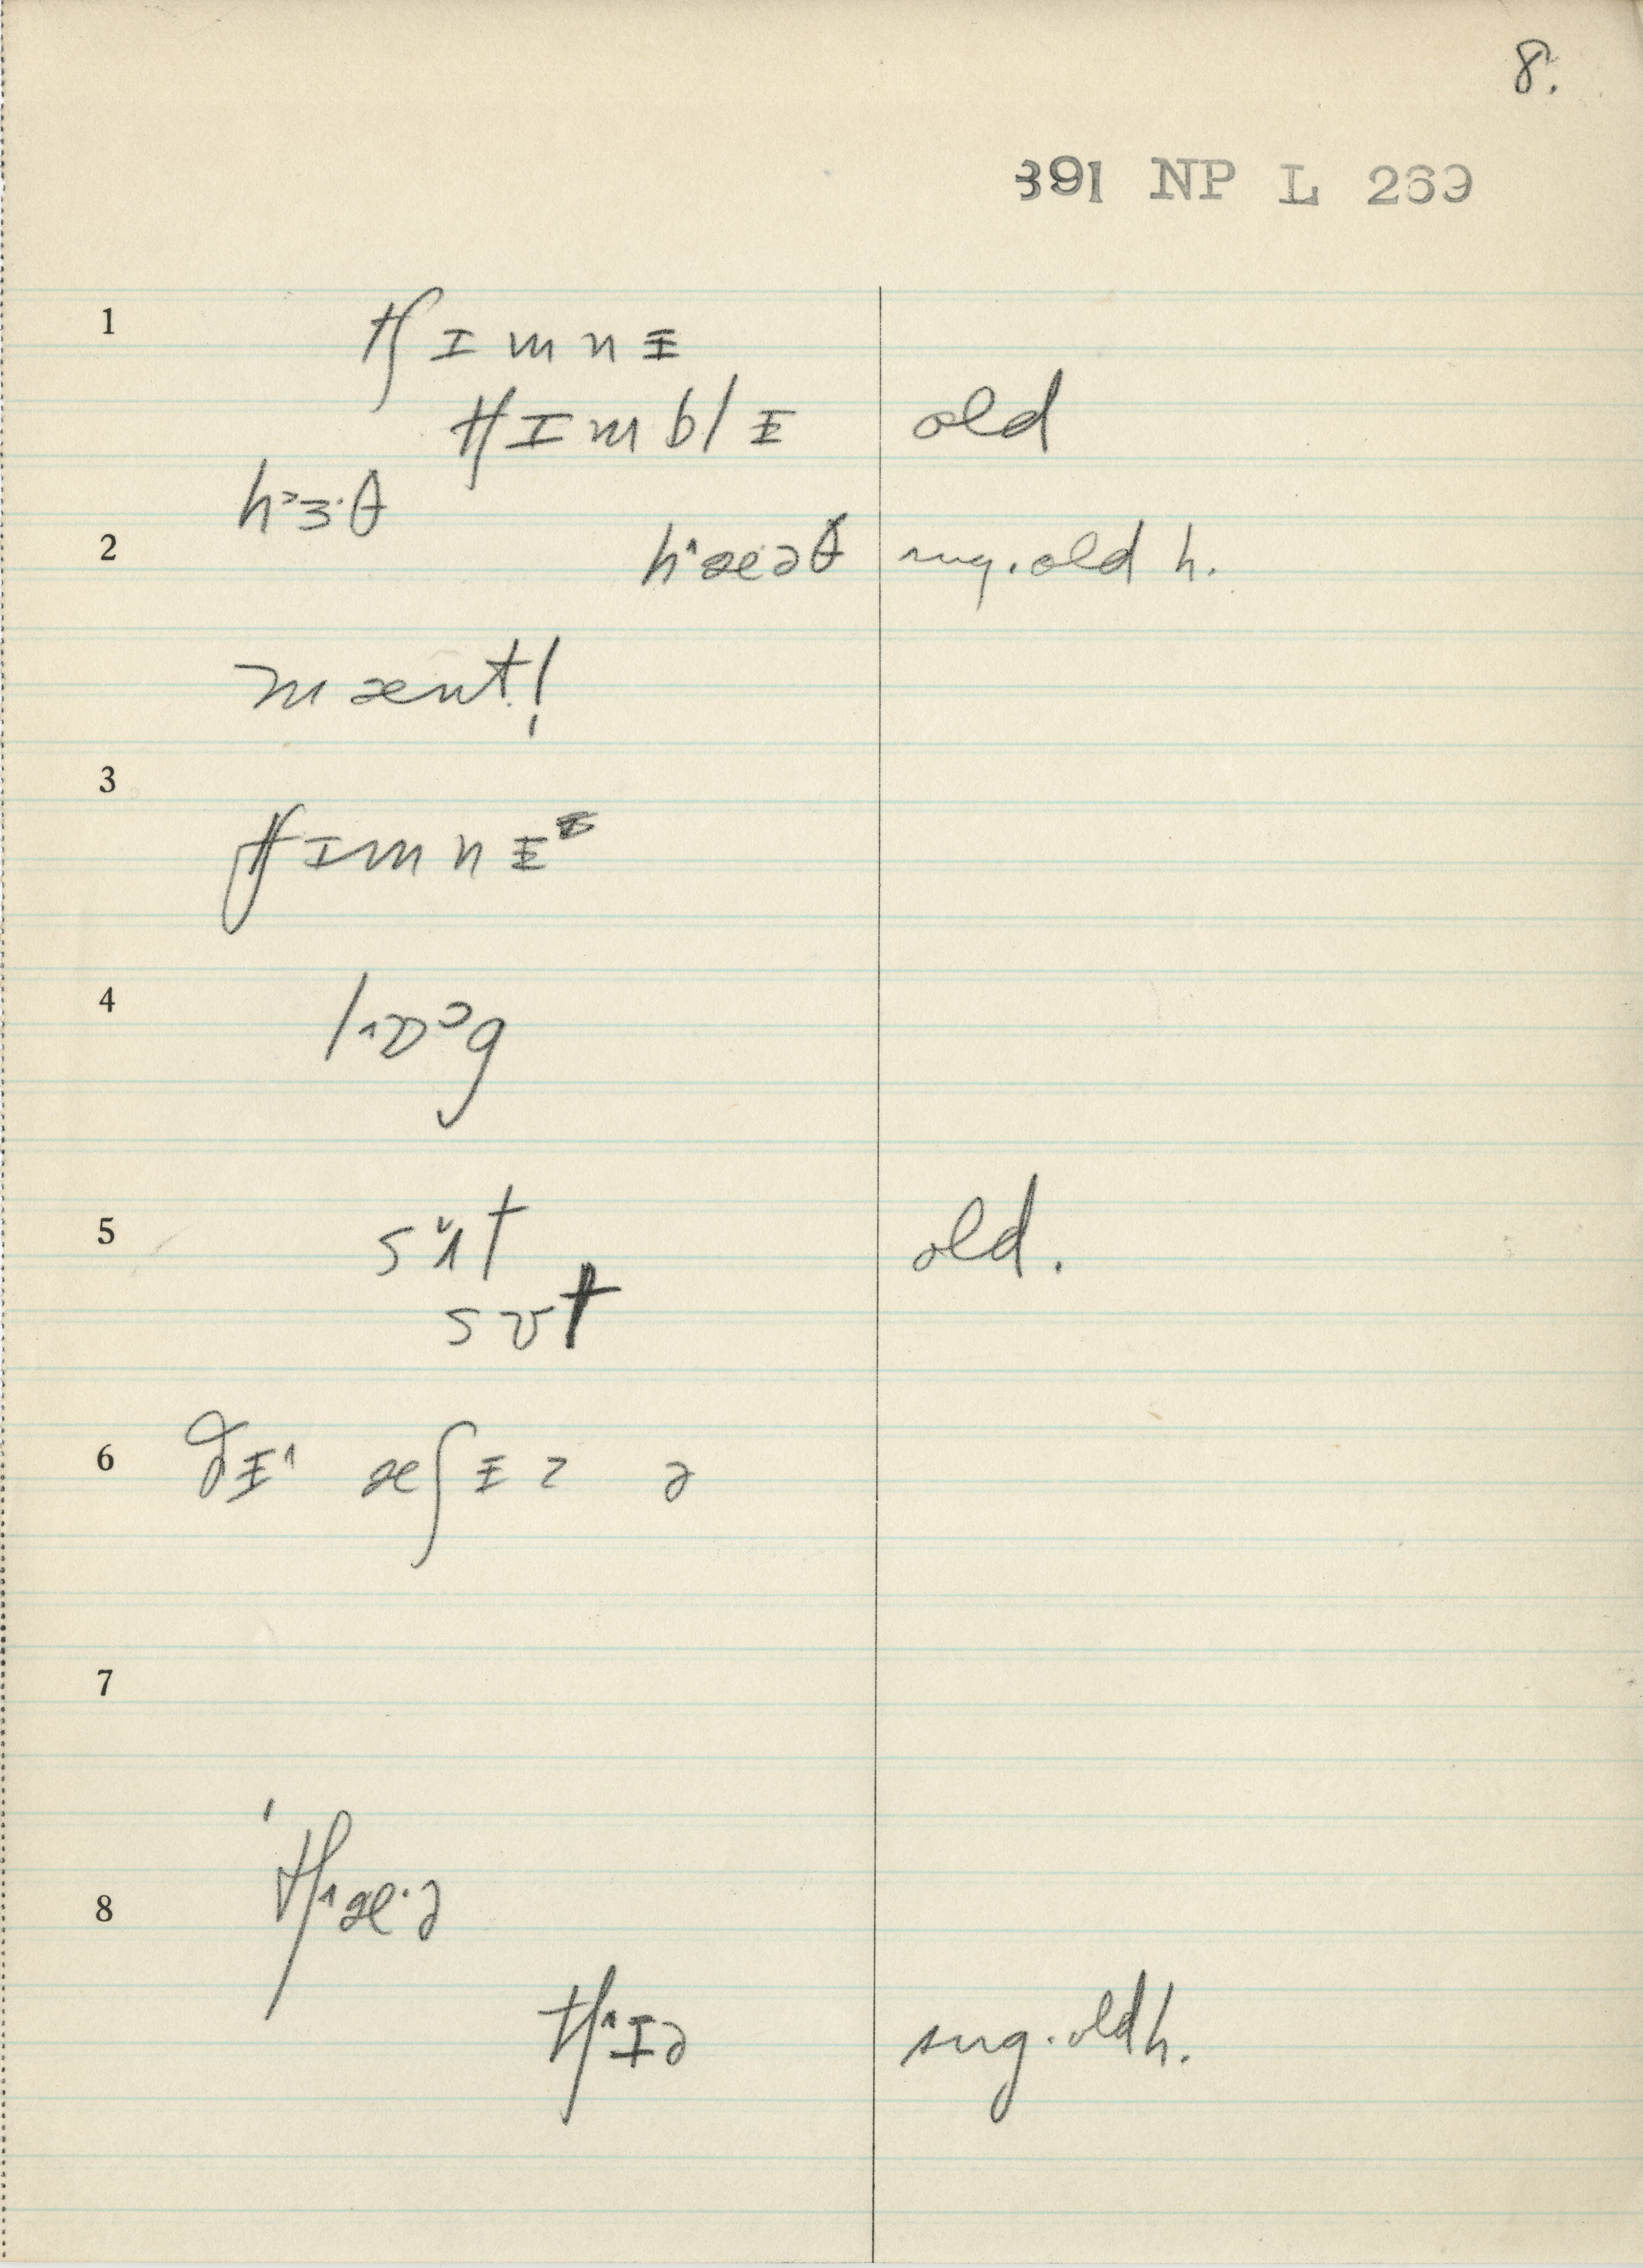 8.
391 NP L 269
1
tʃɪmnɨ
tʃɪmblɨ old
h˃ɜ·θ
2 h˄æəθ sug. old h.
mænt!
3
tʃɪmnɨᵻ
4 l˄ɒᵓg
5 sʌ̆t old.
sʊt
6 ðɨ˄ æʃɨz ə
7
8 tʃ˄æ·ə
tʃ˄ɪə sug. old h.